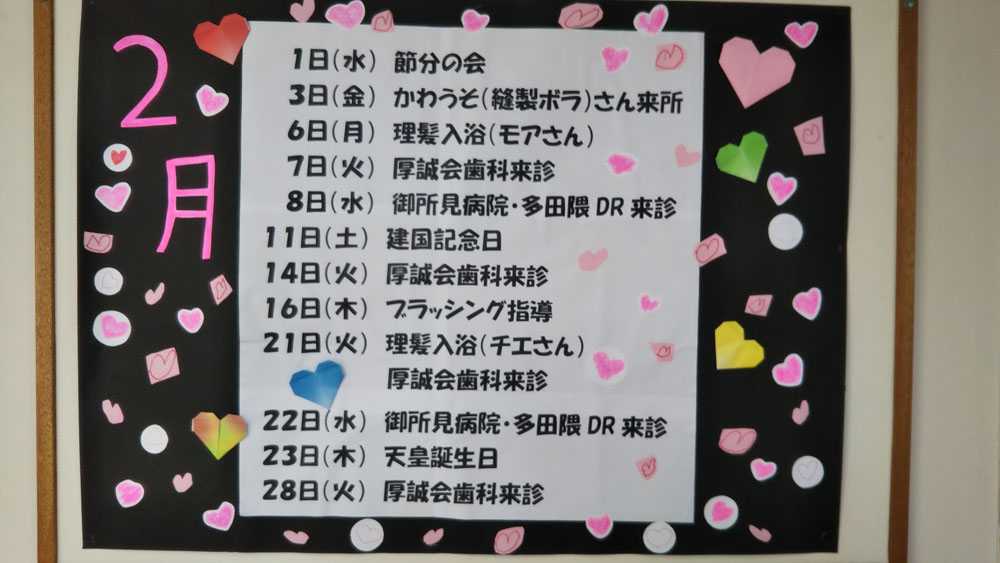 2月
1日(水) 節分の会
3日(金) かわうそ(縫製ボラ)さん来所
6日(月) 理髪入浴(モアさん)
7日(火) 厚誠会歯科来診
8日(水) 御所見病院・多田隈DR来診
11日(土) 建国記念日
14日(火) 厚誠会歯科来診
16日(木) ブラッシング指導
21日(火) 理髪入浴(チエさん)
厚誠会歯科来診
22日(水) 御所見病院・多田隈DR来診
23日(木) 天皇誕生日
28日(火) 厚誠会歯科来診